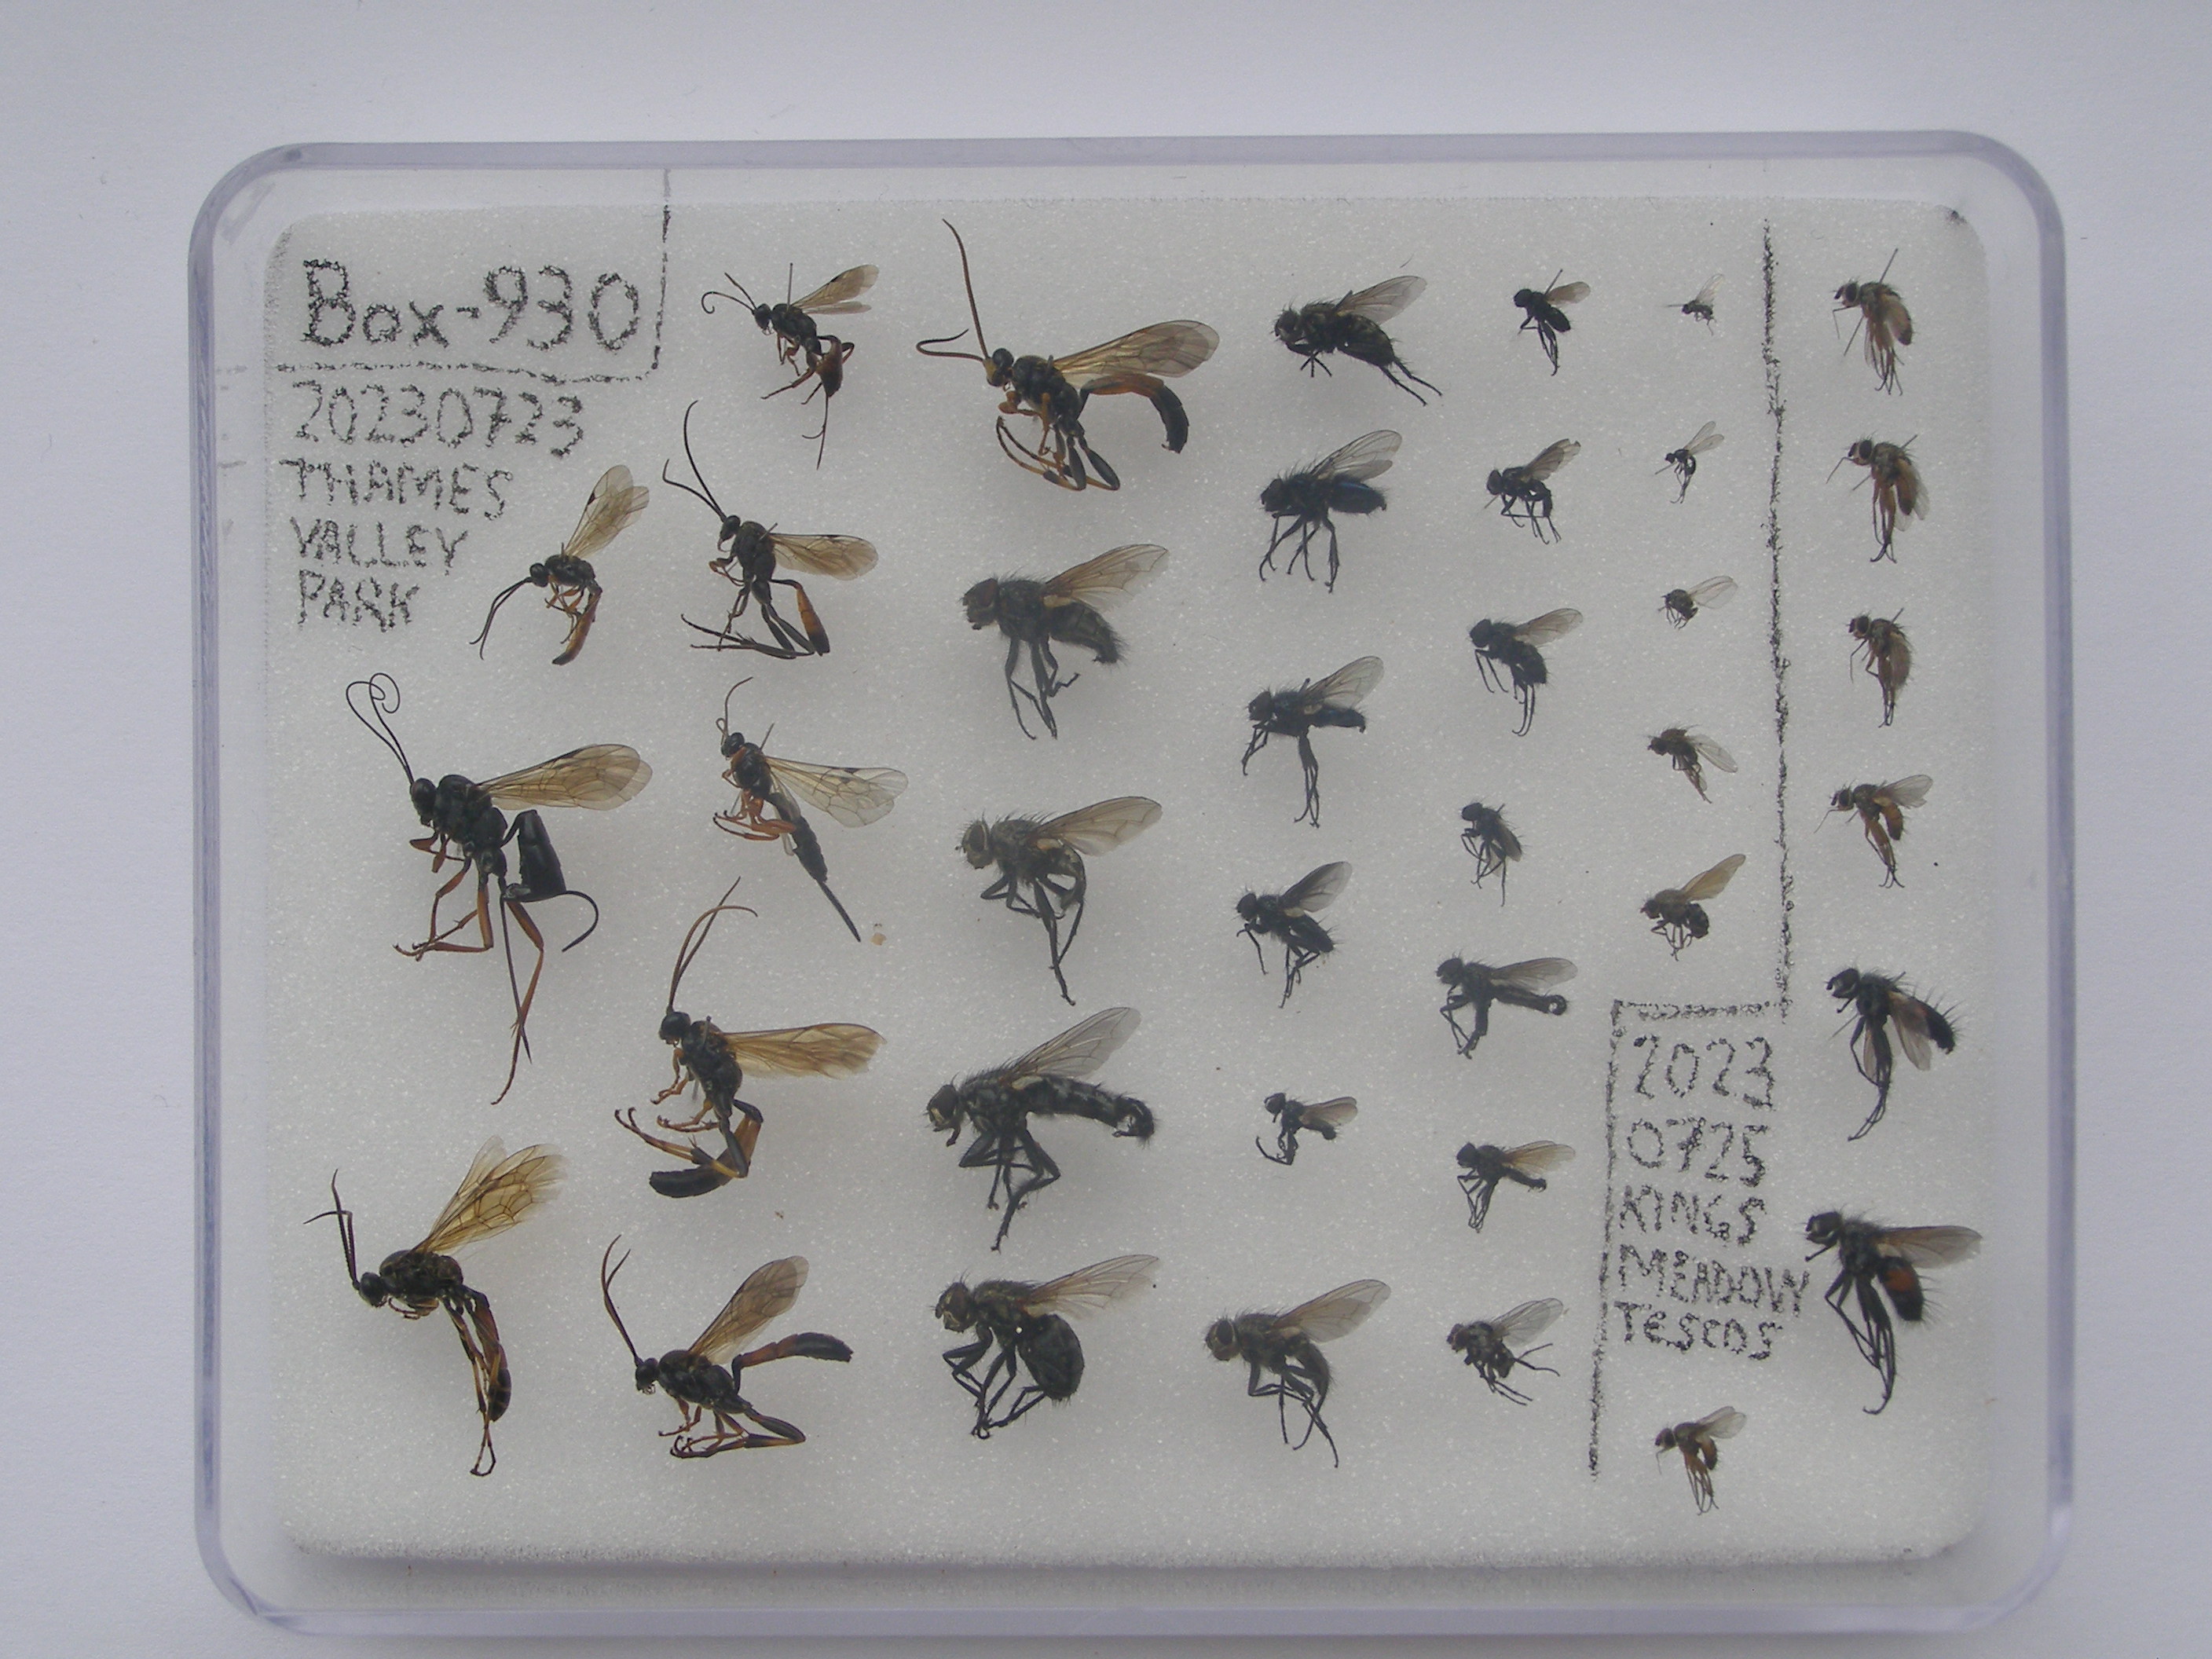 Box-930
20230723
THAMES
VALLEY
PARK
2023
0725
KINGS
MEADOW
TESCOS